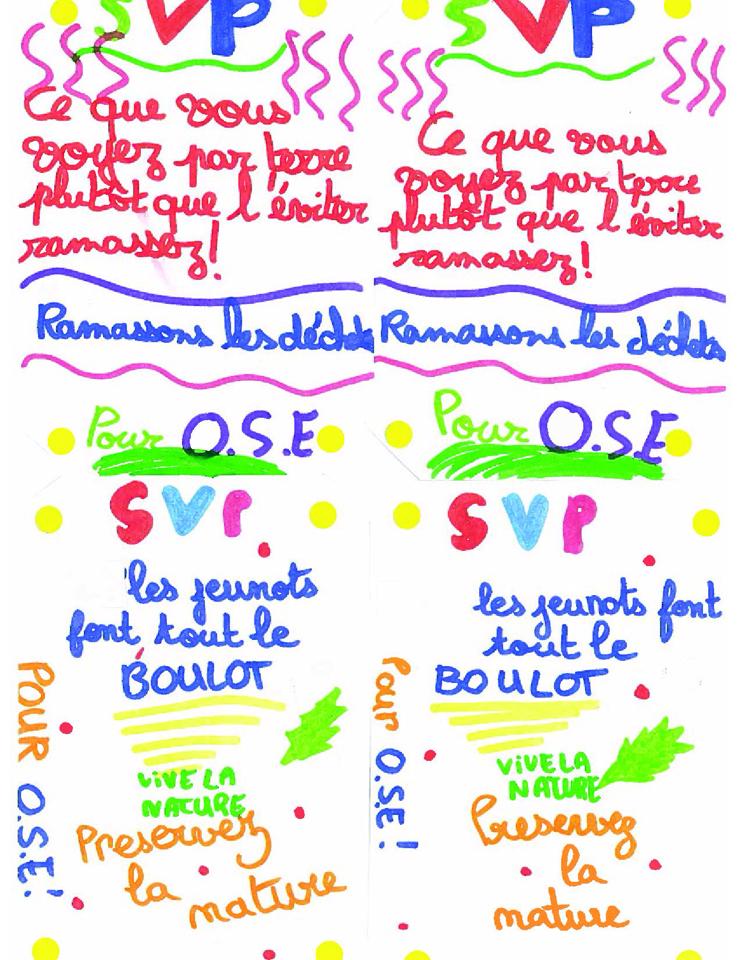 SVP
Ce que vous
voyez par terre
plutôt que l'éviter
ramassez!
Ramassons les déchets
Pour O.S.E
SVP
Ce que vous
voyez par terre
plutôt que l'éviter
ramassez!
Ramassons les déchets
Pour O.S.E
SVP
les jeunots
font tout le
BOULOT
VIVE LA
NATURE
Preservez
la
nature
POUR O.S.E!
SVP
les jeunots font
tout le
BOULOT
VIVE LA
NATURE
Preservez
la
nature
Pour O.S.E!